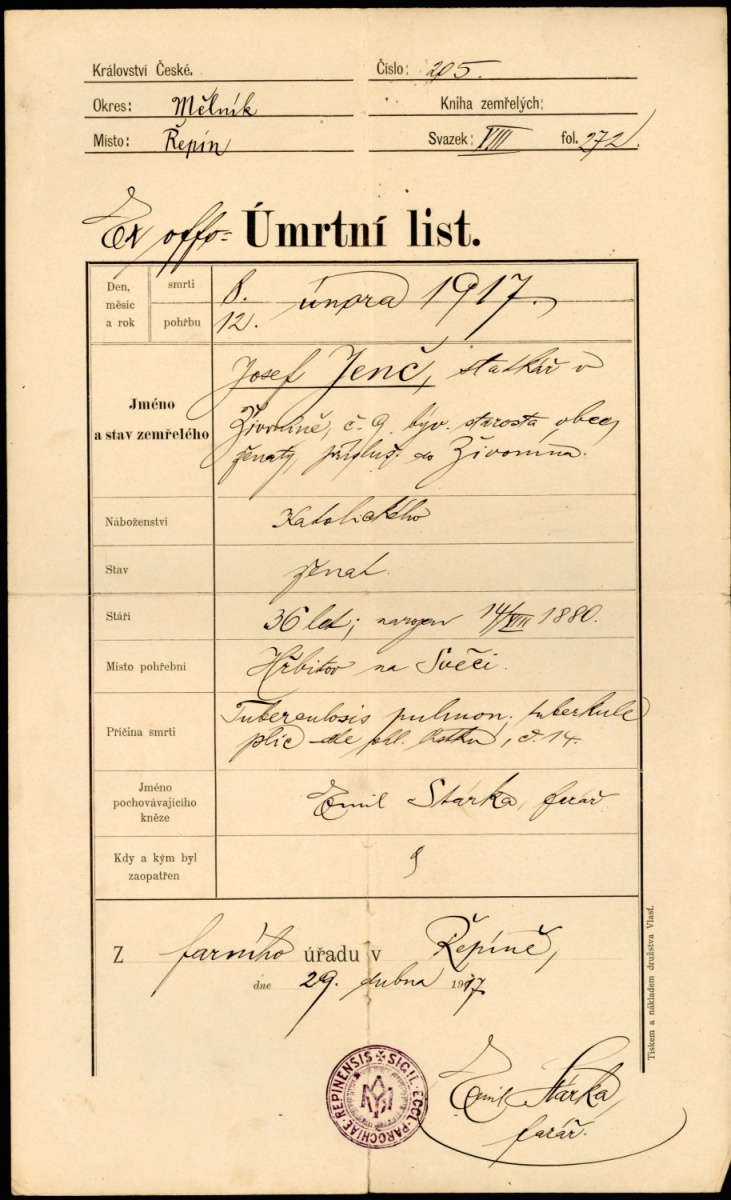 Království České.
Číslo: 205.
Okres: Mělník
Kniha zemřelých;
Místo: Řepín
Svazek: VIII fol. 272.
Ex offo = Úmrtní list.
Den, měsíc a rok
smrti 8. února 1917.
pohřbu 12.
Jméno a stav zemřelého
Josef Jenč, statkář v
Živoníně, č. 9 býv. starosta obce,
ženatý, přísluš. do Živonína.
Náboženství Katolického
Stav ženat.
Stáří 36 let; narozen 14/VIII 1880.
Místo pohřební Hřbitov na Svěčí.
Příčina smrti
Tuberculosis pulmon. tuberkule
plic dle ohl. lístku, č. 14.
Jméno
pochovávajícího
kněze
Emil Stárka, farář
Kdy a kým byl
zaopatřen
Z farního úřadu v Řepíně,
dne 29. dubna 1917
SIGIL. ECCL. PAROCHIAE REPINENSIS
Emil Stárka,
farář.
Tiskem a nákladem družstva Vlasť.